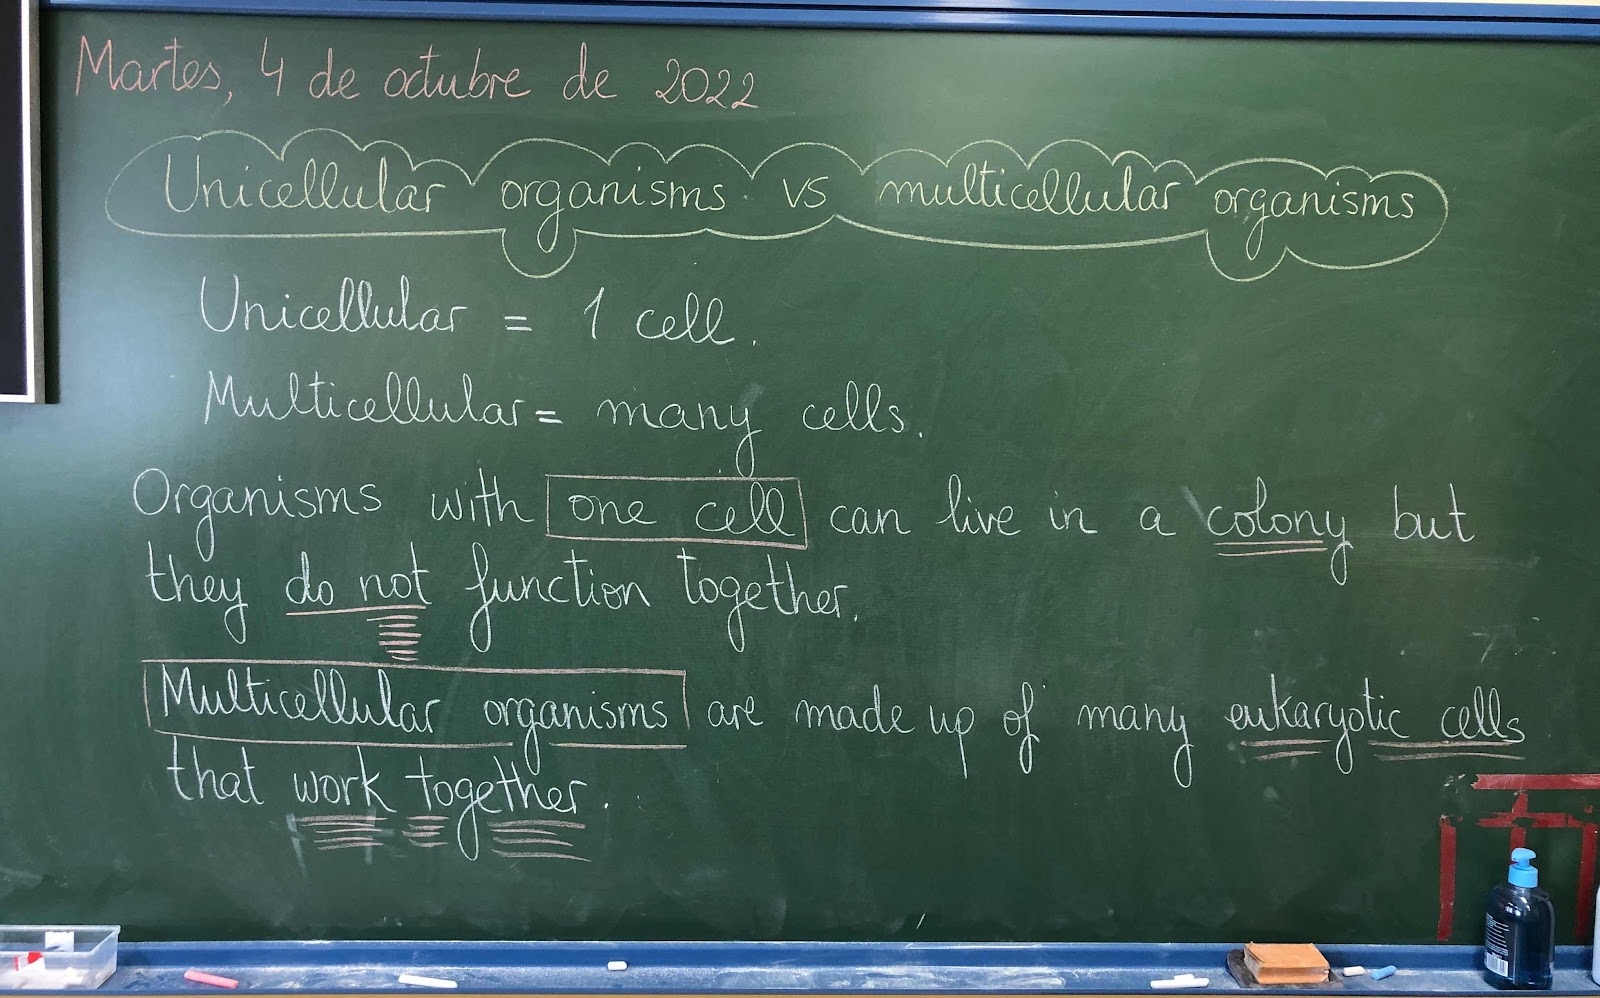 Martes, 4 de octubre de 2022
Unicellular organisms vs multicellular organisms
Unicellular = 1 cell.
Multicellular = many cells.
Organisms with one cell can live in a colony but
they do not function together.
Multicellular organisms are made up of many eukaryotic cells
that work together.